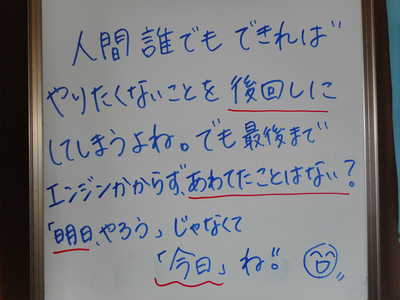 人間誰でも できれば
やりたくないことを後回しに
してしまうよね。でも最後まで
エンジンかからず、あわてたことはない?
「明日、やろう」じゃなくて
「今日」ね!!